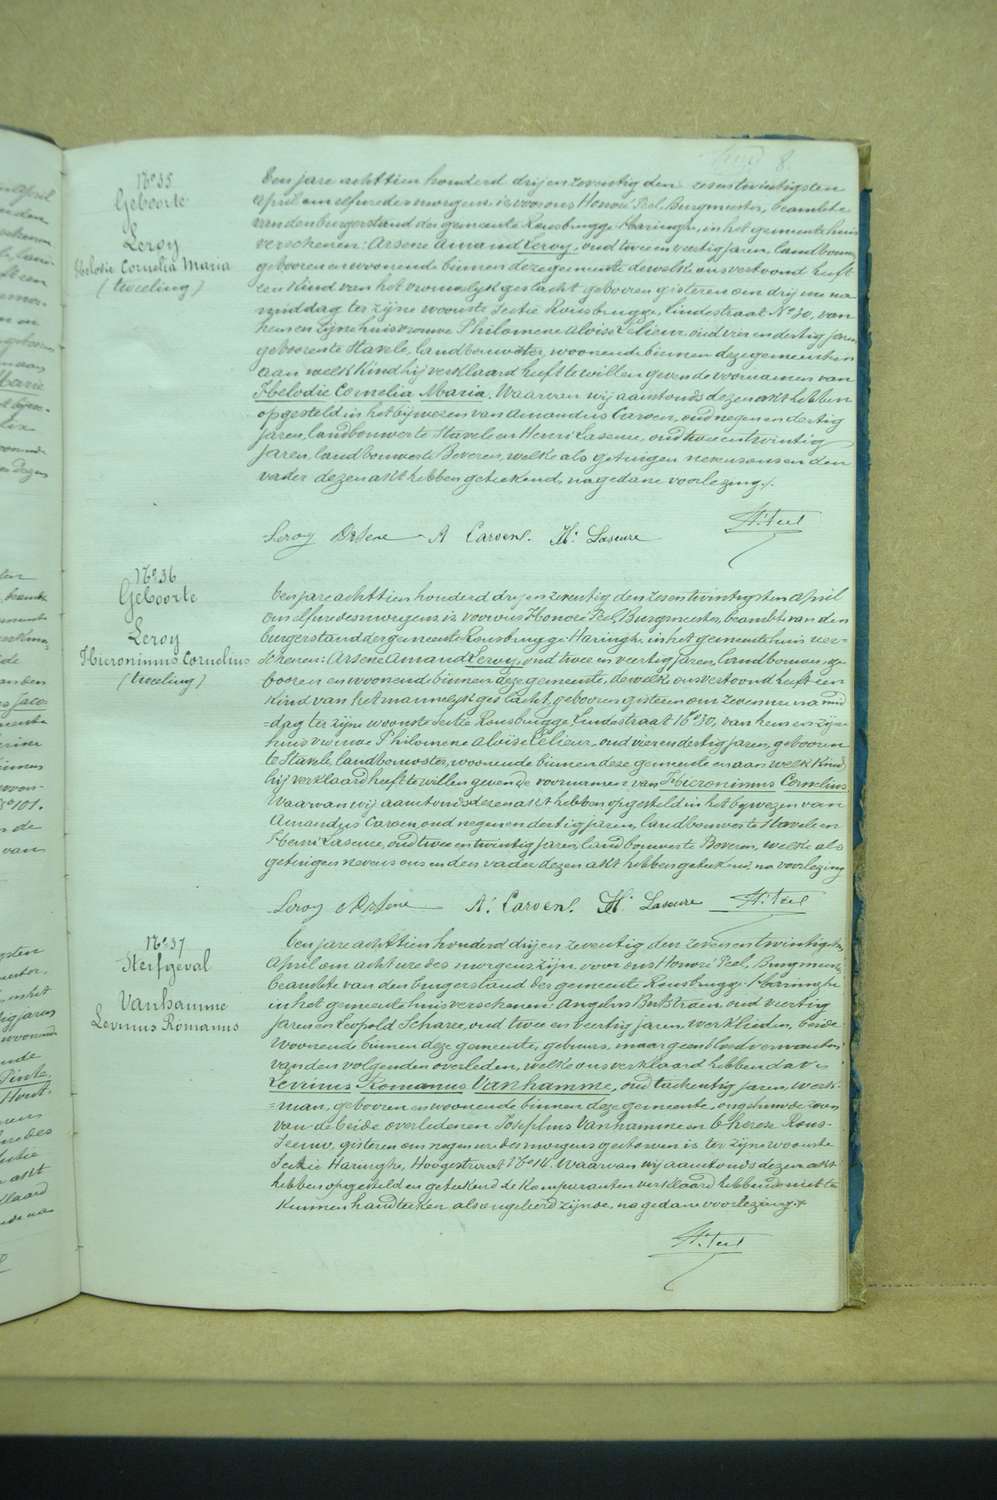 8
N° 35
Geboorte
Leroy
Helodie Cornelia Maria
(tweeling)
Een jare achttien honderd drij en zeventig den zesentwintigsten
april om elf ure des morgens is voor ons Honoré Peel, Burgmeester, beambte
van den burgerstand der gemeente Rousbrugge-Haringhe, in het gemeentehuis
verschenen: Arsene Amand Leroy, oud twee en veertig jaren, landbouwer,
geboren en woonende binnen deze gemeente dewelke ons vertoond heeft
een kind van het vrouwelijk geslacht geboren gisteren om drij ure na
middag ter zijne woonste sectie Rousbrugge, lindestraat N° 30, van
hem en zijne huisvrouwe Philomene Aloise Lelieur oud vier en dertig jaren,
geboren te Stavele, landbouwster, woonende binnen deze gemeente en
aan welk kind hij verklaard heeft te willen geven de voornamen van
Helodie Cornelia Maria. Waarvan wij aanstonds dezen akt hebben
opgesteld in het bijwezen van Amandus Caroen, oud negen en dertig
jaren, landbouwer te Stavele en Henri Laseure, oud twee en twintig
jaren, landbouwer te Beveren, welke als getuigen nevens ons en den
vader dezen akt hebben geteekend, na gedane voorlezing./.
Leroy Arsene A Caroen. H. Laseure H. Peel
N° 36
Geboorte
Leroy
Hieronimus Cornelius
(tweeling)
Een jare achttien honderd drij en zeventig den zesentwintigsten April
om elf ure des morgens is voor ons Honoré Peel, Burgmeester, beambte van den
burgerstand der gemeente Rousbrugge-Haringhe in het gemeentehuis ver-
schenen: Arsene Amand Leroy, oud twee en veertig jaren, landbouwer, ge-
boren en woonende binnen deze gemeente, dewelke ons vertoond heeft een
kind van het mannelijk geslacht, geboren gisteren om zeven ure na mid
=dag ter zijne woonste sectie Rousbrugge Lindestraat N° 30, van hem en zijne
huisvrouwe Philomene Aloise Lelieur, oud vier en dertig jaren, geboren
te Stavele, landbouwster, woonende binnen deze gemeente en aan welk kind
hij verklaard heeft te willen geven de voornamen van Hieronimus Cornelius
Waarvan wij aanstonds dezen akt hebben opgesteld in het bijwezen van
Amandus Caroen, oud negen en dertig jaren, landbouwer te Stavele en
Henri Laseure, oud twee en twintig jaren, landbouwer te Beveren, welke als
getuigen nevens ons en den vader dezen akt hebben geteekend, na voorlezing
Leroy Arsene A. Caroen. H. Laseure H. Peel
N° 37
Sterfgeval
Vanhamme
Levinus Romanus
Een jare achttien honderd drij en zeventig den zeven en twintigsten
April om acht ure des morgens zijn voor ons Honoré Peel, Burgmeester,
beambte van den burgerstand der gemeente Rousbrugge-Haringhe
in het gemeentehuis verschenen: Angelus Bertstraen, oud veertig
jaren en Leopold Scharre, oud twee en veertig jaren, werklieden, beide
woonende binnen deze gemeente, gebuurs, maar geen bloedverwanten
van den volgenden overleden, welke ons verklaard hebben dat
Levinus Romanus Vanhamme, oud tachentig jaren, werk-
=man, geboren en woonende binnen deze gemeente, ongehuwde zoon
van de beide overledenen Josephus Vanhamme en Therese Rous-
seeuw, gisteren om negen ure des morgens gestorven is ter zijne woonste
Sectie Haringhe, Hoogestraat N° 14. Waarvan wij aanstonds dezen akt
hebben opgesteld en geteekend de komparanten verklaard hebbende niet te
kunnen handteeken als ongeleerd zijnde, na gedane voorlezing.+
H. Peel